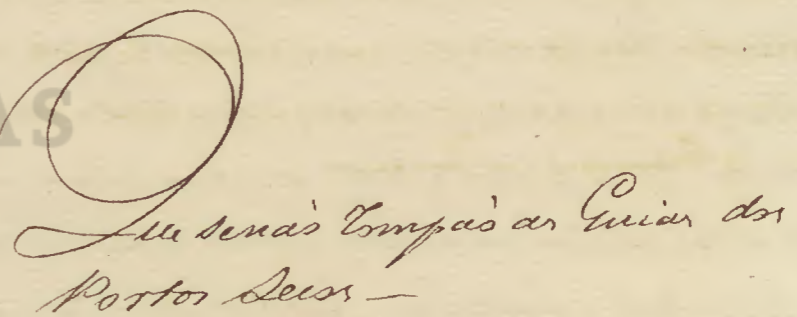 AS
Que senaò Rompaò as Guias dos
Portos Secos —